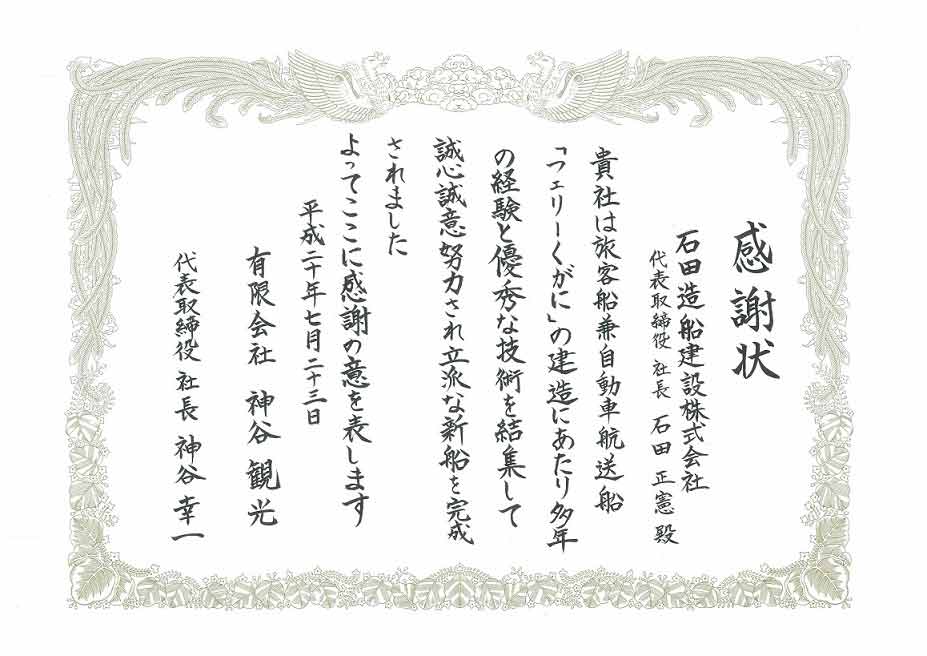 感謝状
石田造船建設株式会社
代表取締役 社長 石田 正憲 殿
貴社は旅客船兼自動車航送船
「フェリーくがに」の建造にあたり多年
の経験と優秀な技術を結集して
誠心誠意努力され立派な新船を完成
されました
よってここに感謝の意を表します
平成二十年七月二十三日
有限会社 神谷観光
代表取締役 社長 神谷幸一